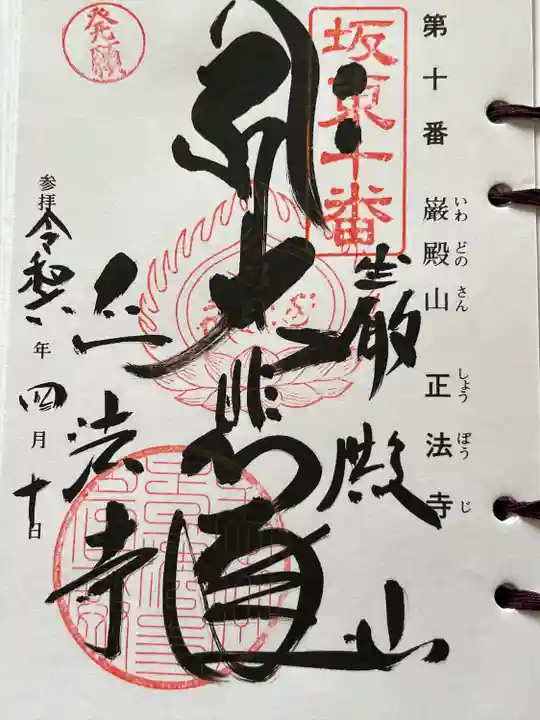 第十番 巌殿山 正法寺
いわ どの さん しょう ぼう じ
坂東十番
巌殿山
大悲殿
正法寺
発願
参拝 令和六年四月十日